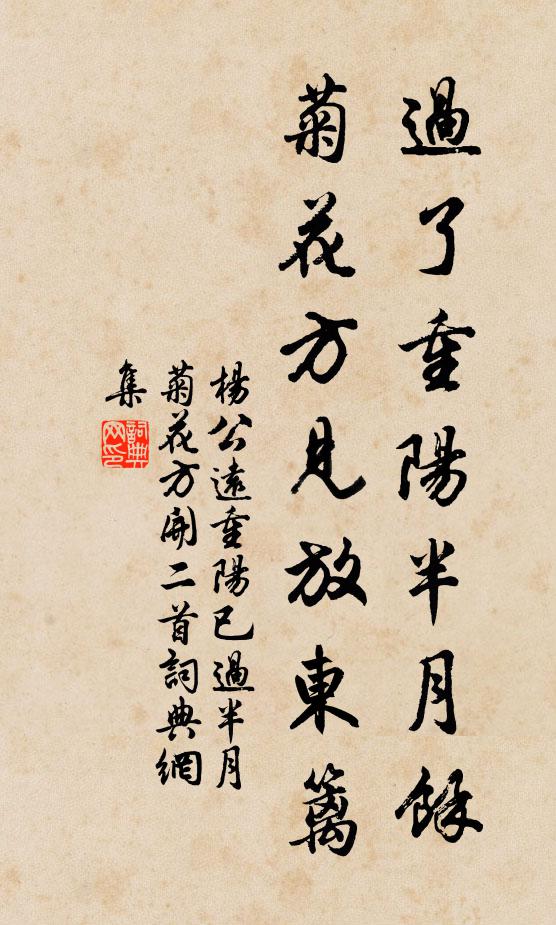 過了重陽半月餘
菊花方見放東籬
楊公遠重陽已過半月
菊花方開二首詞典網
集
詞典
网印